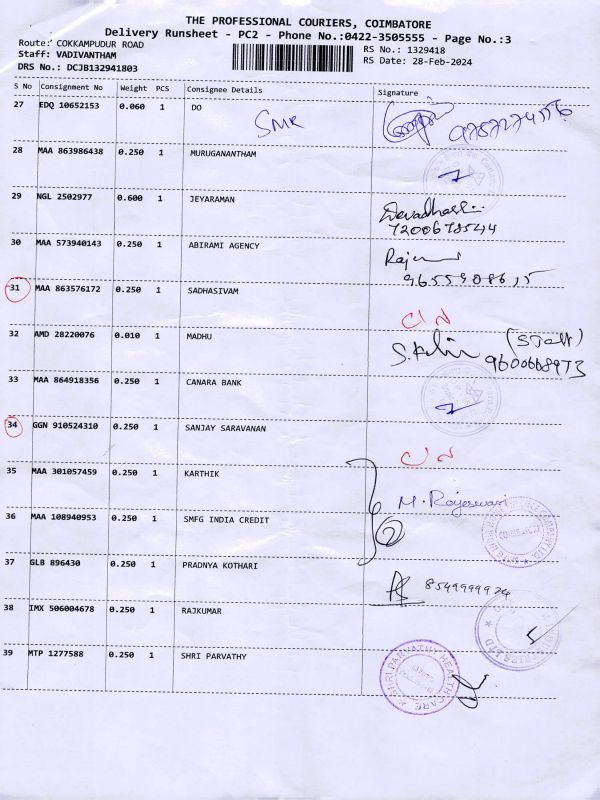 THE PROFESSIONAL COURIERS, COIMBATORE
Delivery Runsheet - PC2 - Phone No.:0422-3505555 - Page No.:3
Route: COKKAMPUDUR ROAD
Staff: VADIVANTHAM
DRS No.: DCJB132941803
RS No.: 1329418
RS Date: 28-Feb-2024
S No Consignment No Weight PCS Consignee Details Signature
27 EDQ 10652153 0.060 1 DO
SMR
28 MAA 863986438 0.250 1 MURUGANANTHAM
29 NGL 2502977 0.600 1 JEYARAMAN
7200678544
30 MAA 573940143 0.250 1 ABIRAMI AGENCY
31 MAA 863576172 0.250 1 SADHASIVAM
32 AMD 28220076 0.010 1 MADHU
9600668973
33 MAA 864918356 0.250 1 CANARA BANK
34 GGN 910524310 0.250 1 SANJAY SARAVANAN
35 MAA 301057459 0.250 1 KARTHIK
M. Rajeswari
36 MAA 108940953 0.250 1 SMFG INDIA CREDIT
2
37 GLB 896430 0.250 1 PRADNYA KOTHARI
8549999924
38 IMX 506004678 0.250 1 RAJKUMAR
39 MTP 1277588 0.250 1 SHRI PARVATHY
SHRI PARVATHY HEALTH CARE